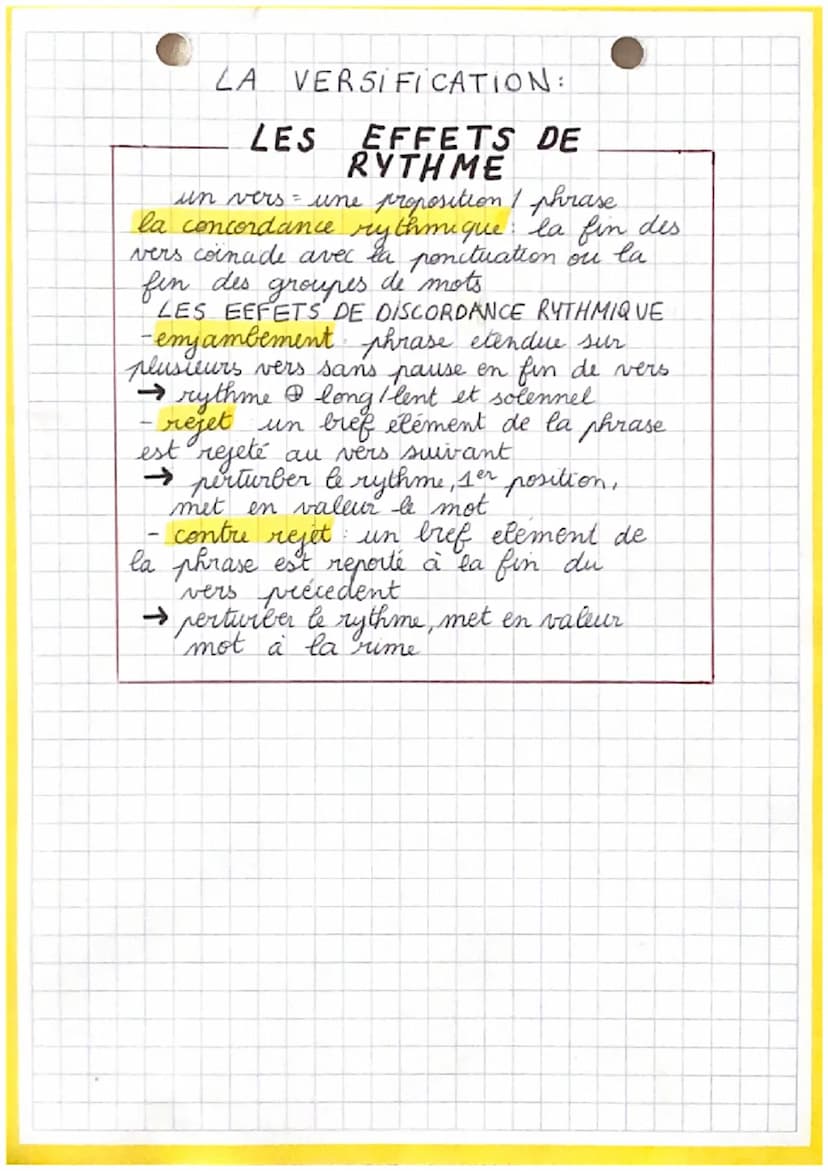 LA VERSIFICATION:
LES EFFETS DE
RYTHME
un vers = une proposition / phrase
la concordance rythmique : la fin des
vers coïncide avec la ponctuation ou la
fin des groupes de mots
LES EFFETS DE DISCORDANCE RYTHMIQUE
- enjambement : phrase etendue sur
plusieurs vers sans pause en fin de vers
→ rythme ⊕ long/lent et solennel
- rejet un bref élément de la phrase
est rejeté au vers suivant
→ perturber le rythme, 1er position,
met en valeur le mot
- contre rejet : un bref element de
la phrase est reporté à la fin du
vers précedent
→ perturber le rythme, met en valeur
mot à la rime